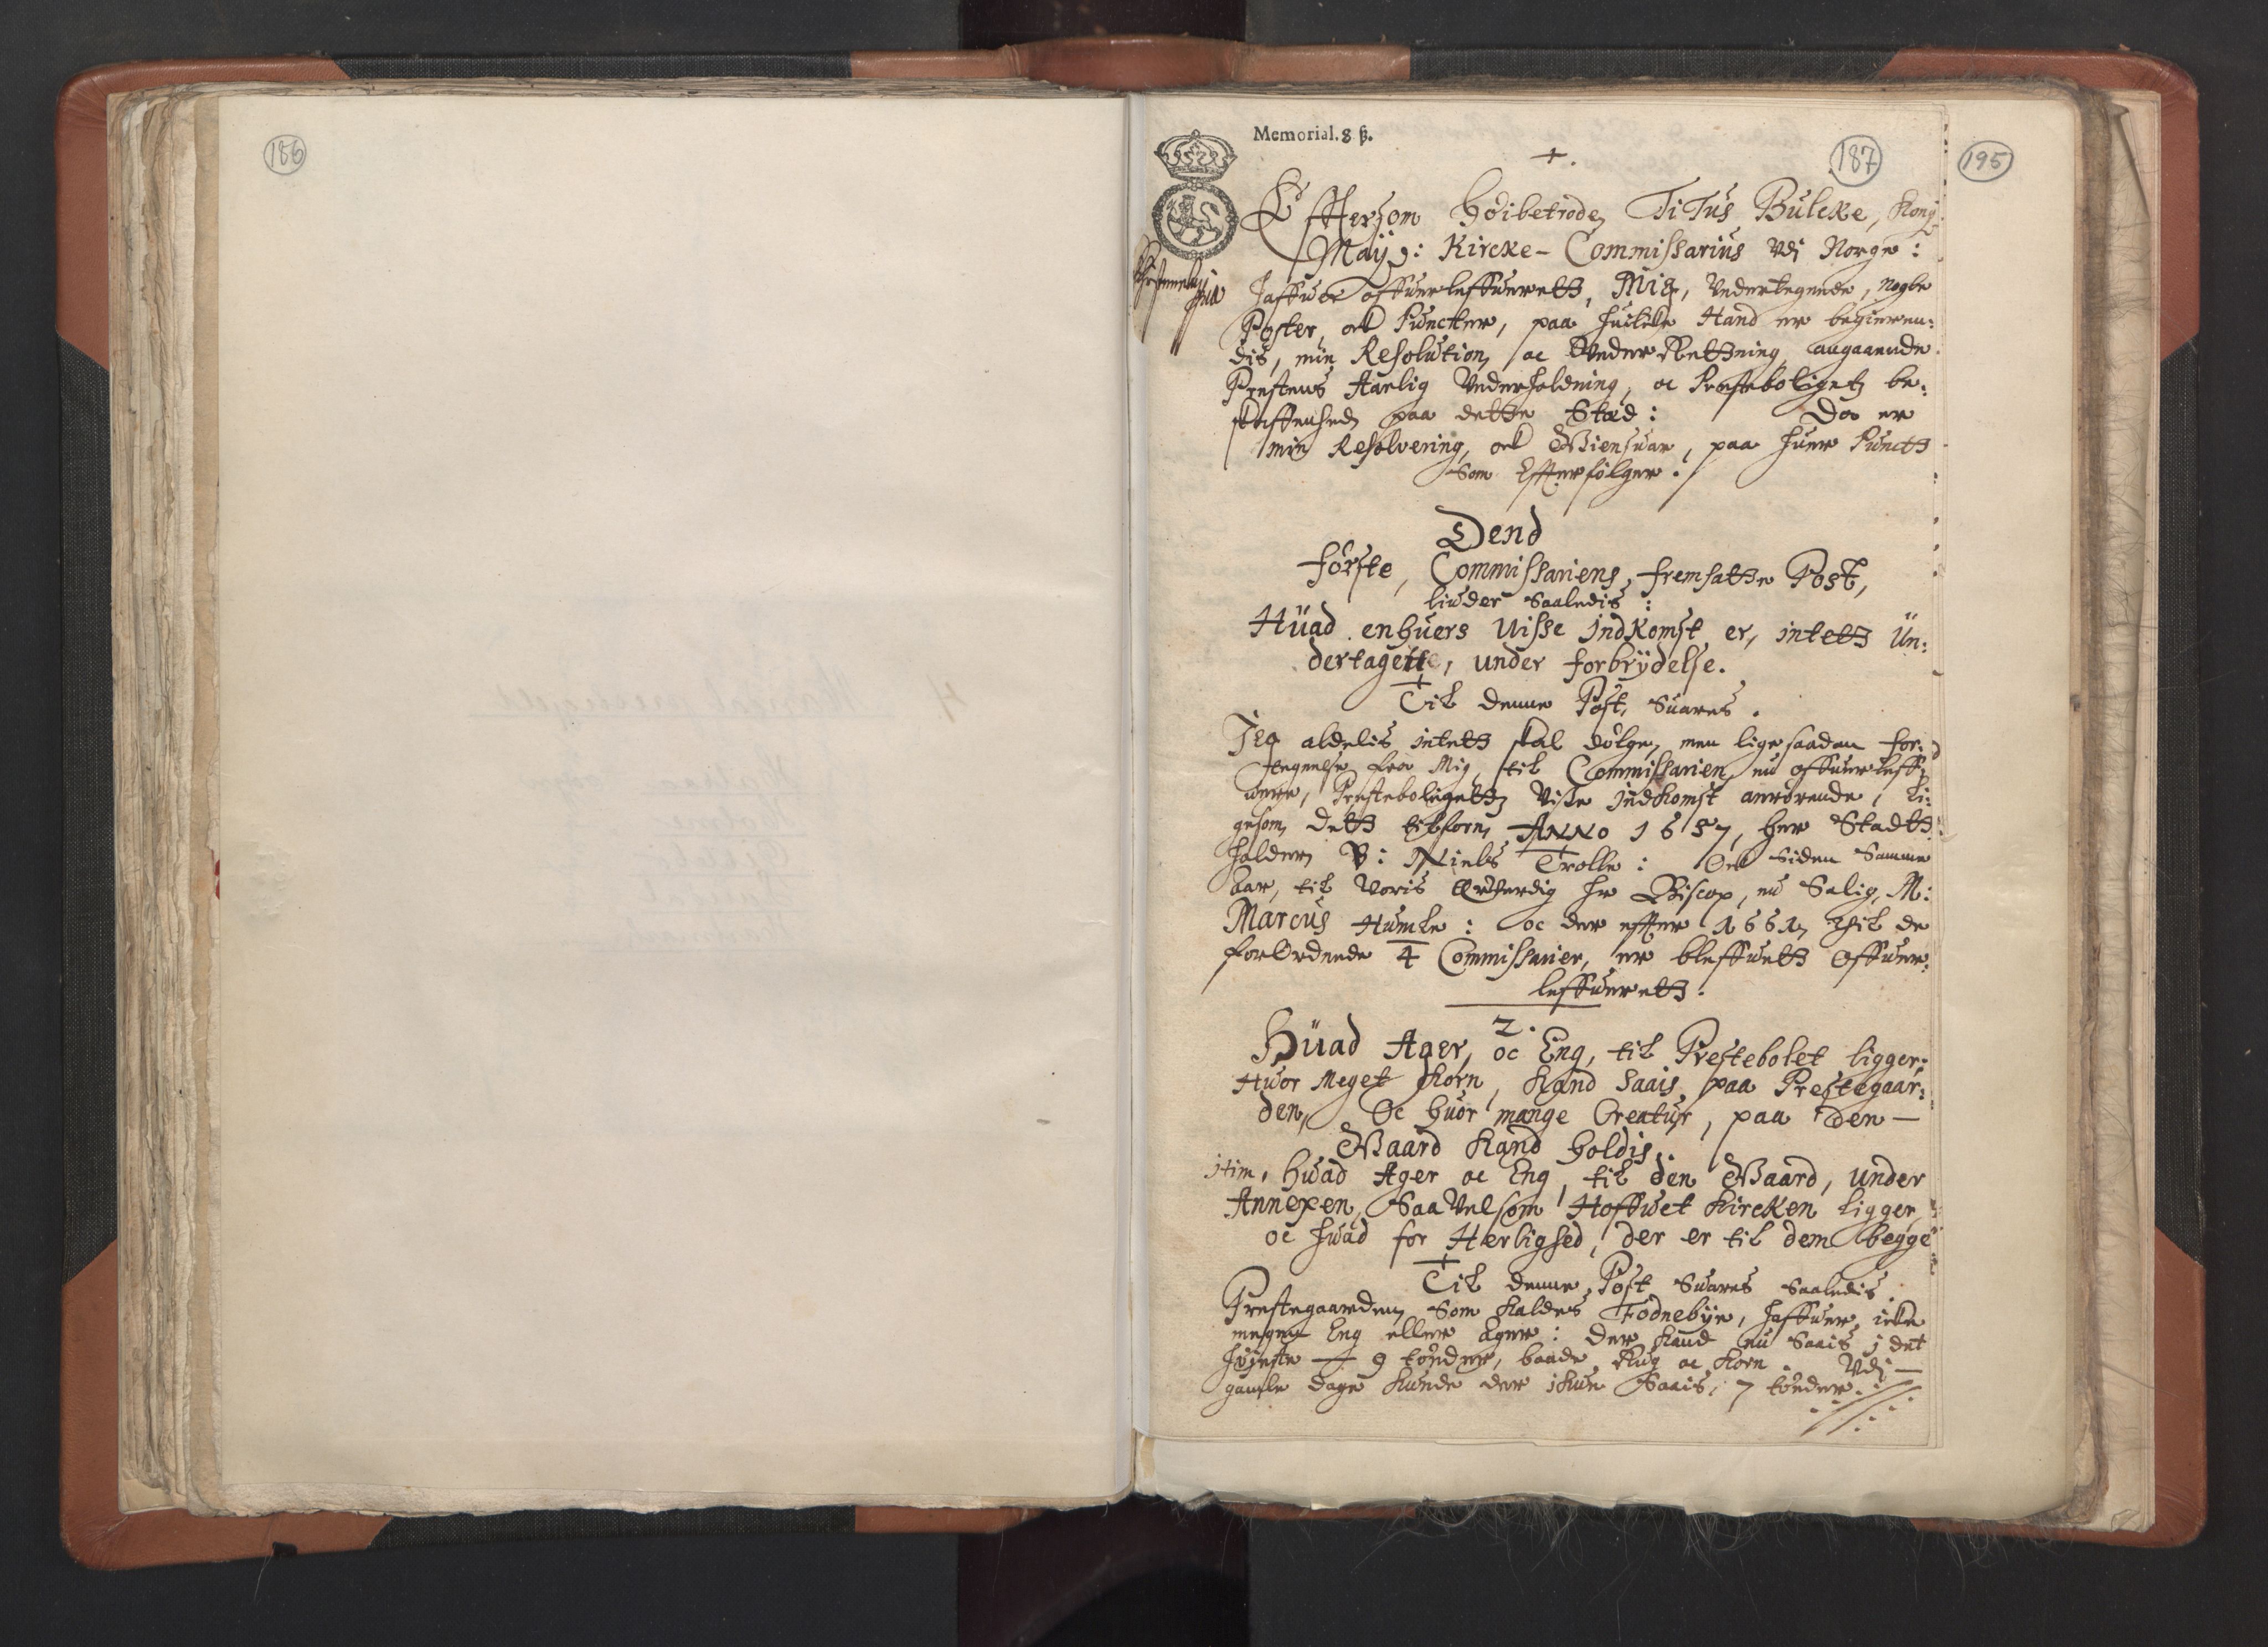 186
Memorial. 8 ß.
187
195
+.
Effterßom Höibetrode Titus Bulcke, Kong
Mayß: Kircke-Commissarius Udj Norge:
haffuer offuerleffueret Mig, Undertegnede, nogle
Poster, och Puncter, paa huilcke Hand er begieren:
dis, min Resolution, oc Underrettning, angaaende
Prestens Aarlig Underholdning, oc Prestebolliget be:
skaffenhed, paa dette Sted: Da er
min Resolvering, och Giensuar, paa huer Punct
Som Effterfølger:
Dend
første, Commissariens, fremsatte Post,
liuder Saaledis:
Hüad enhuers Uisse Indkomst er, intet Ün:
dertagett, under forbrÿdelse.
Til denne Post, Suares.
Jeg aldelis intet skal dølge, men lige saadan for:
tegnelse fra Mig, til Commissarien, nu offuerleff:
uere, Presteboliget Visse Indkomst anrørende, li:
gesom det tilforn, Anno 1657, her Stadt:
holder, V: Niels Trolle: Oc siden Samme
Aar, til Voris Erverdig Hr Biscop, nu Salig, M:
Marcus Humle: oc der effter 1661, til de
forOrdnede 4 Commissarier, er bleffuet Offuer:
leffueret.
2.
Hüad Ager, oc Eng, til Prestebolet ligger:
Huor Meget Korn, Kand Saais, paa Prestegaar:
den, Oc huor mange Creatur, paa den —
Gaard Kand holdis.
Item, huad Ager oc Eng, til den Gaard, under
Annexen, Saa Vel som Hoffuet Kircken ligger
oc huad for Herlighed, der er til dem begge
Til denne Post Suares Saaledis.
Prestegaarden, Som Kaldes Fodnebÿe, haffuer icke
megen Eng eller Ager: der Kand nu Saais j det
høieste — 9 tønder, baade Rug oc Korn. Udj —
gamle dage Kunde der ickun Saais, 7 tønder.